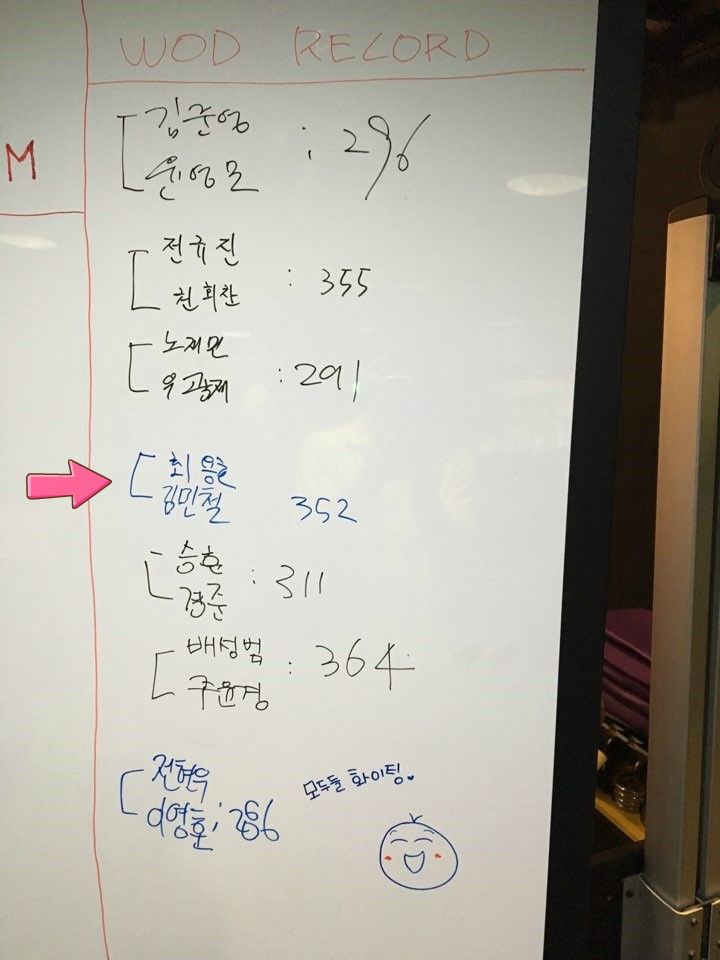 WOD RECORD
M
김준영
윤영모
: 296
전규진
천희찬
: 355
노재민
우광제
: 291
최용호
김민철
352
승훈
경준
: 311
배성범
주윤경
: 364
전현우
이영호;
모두들 화이팅